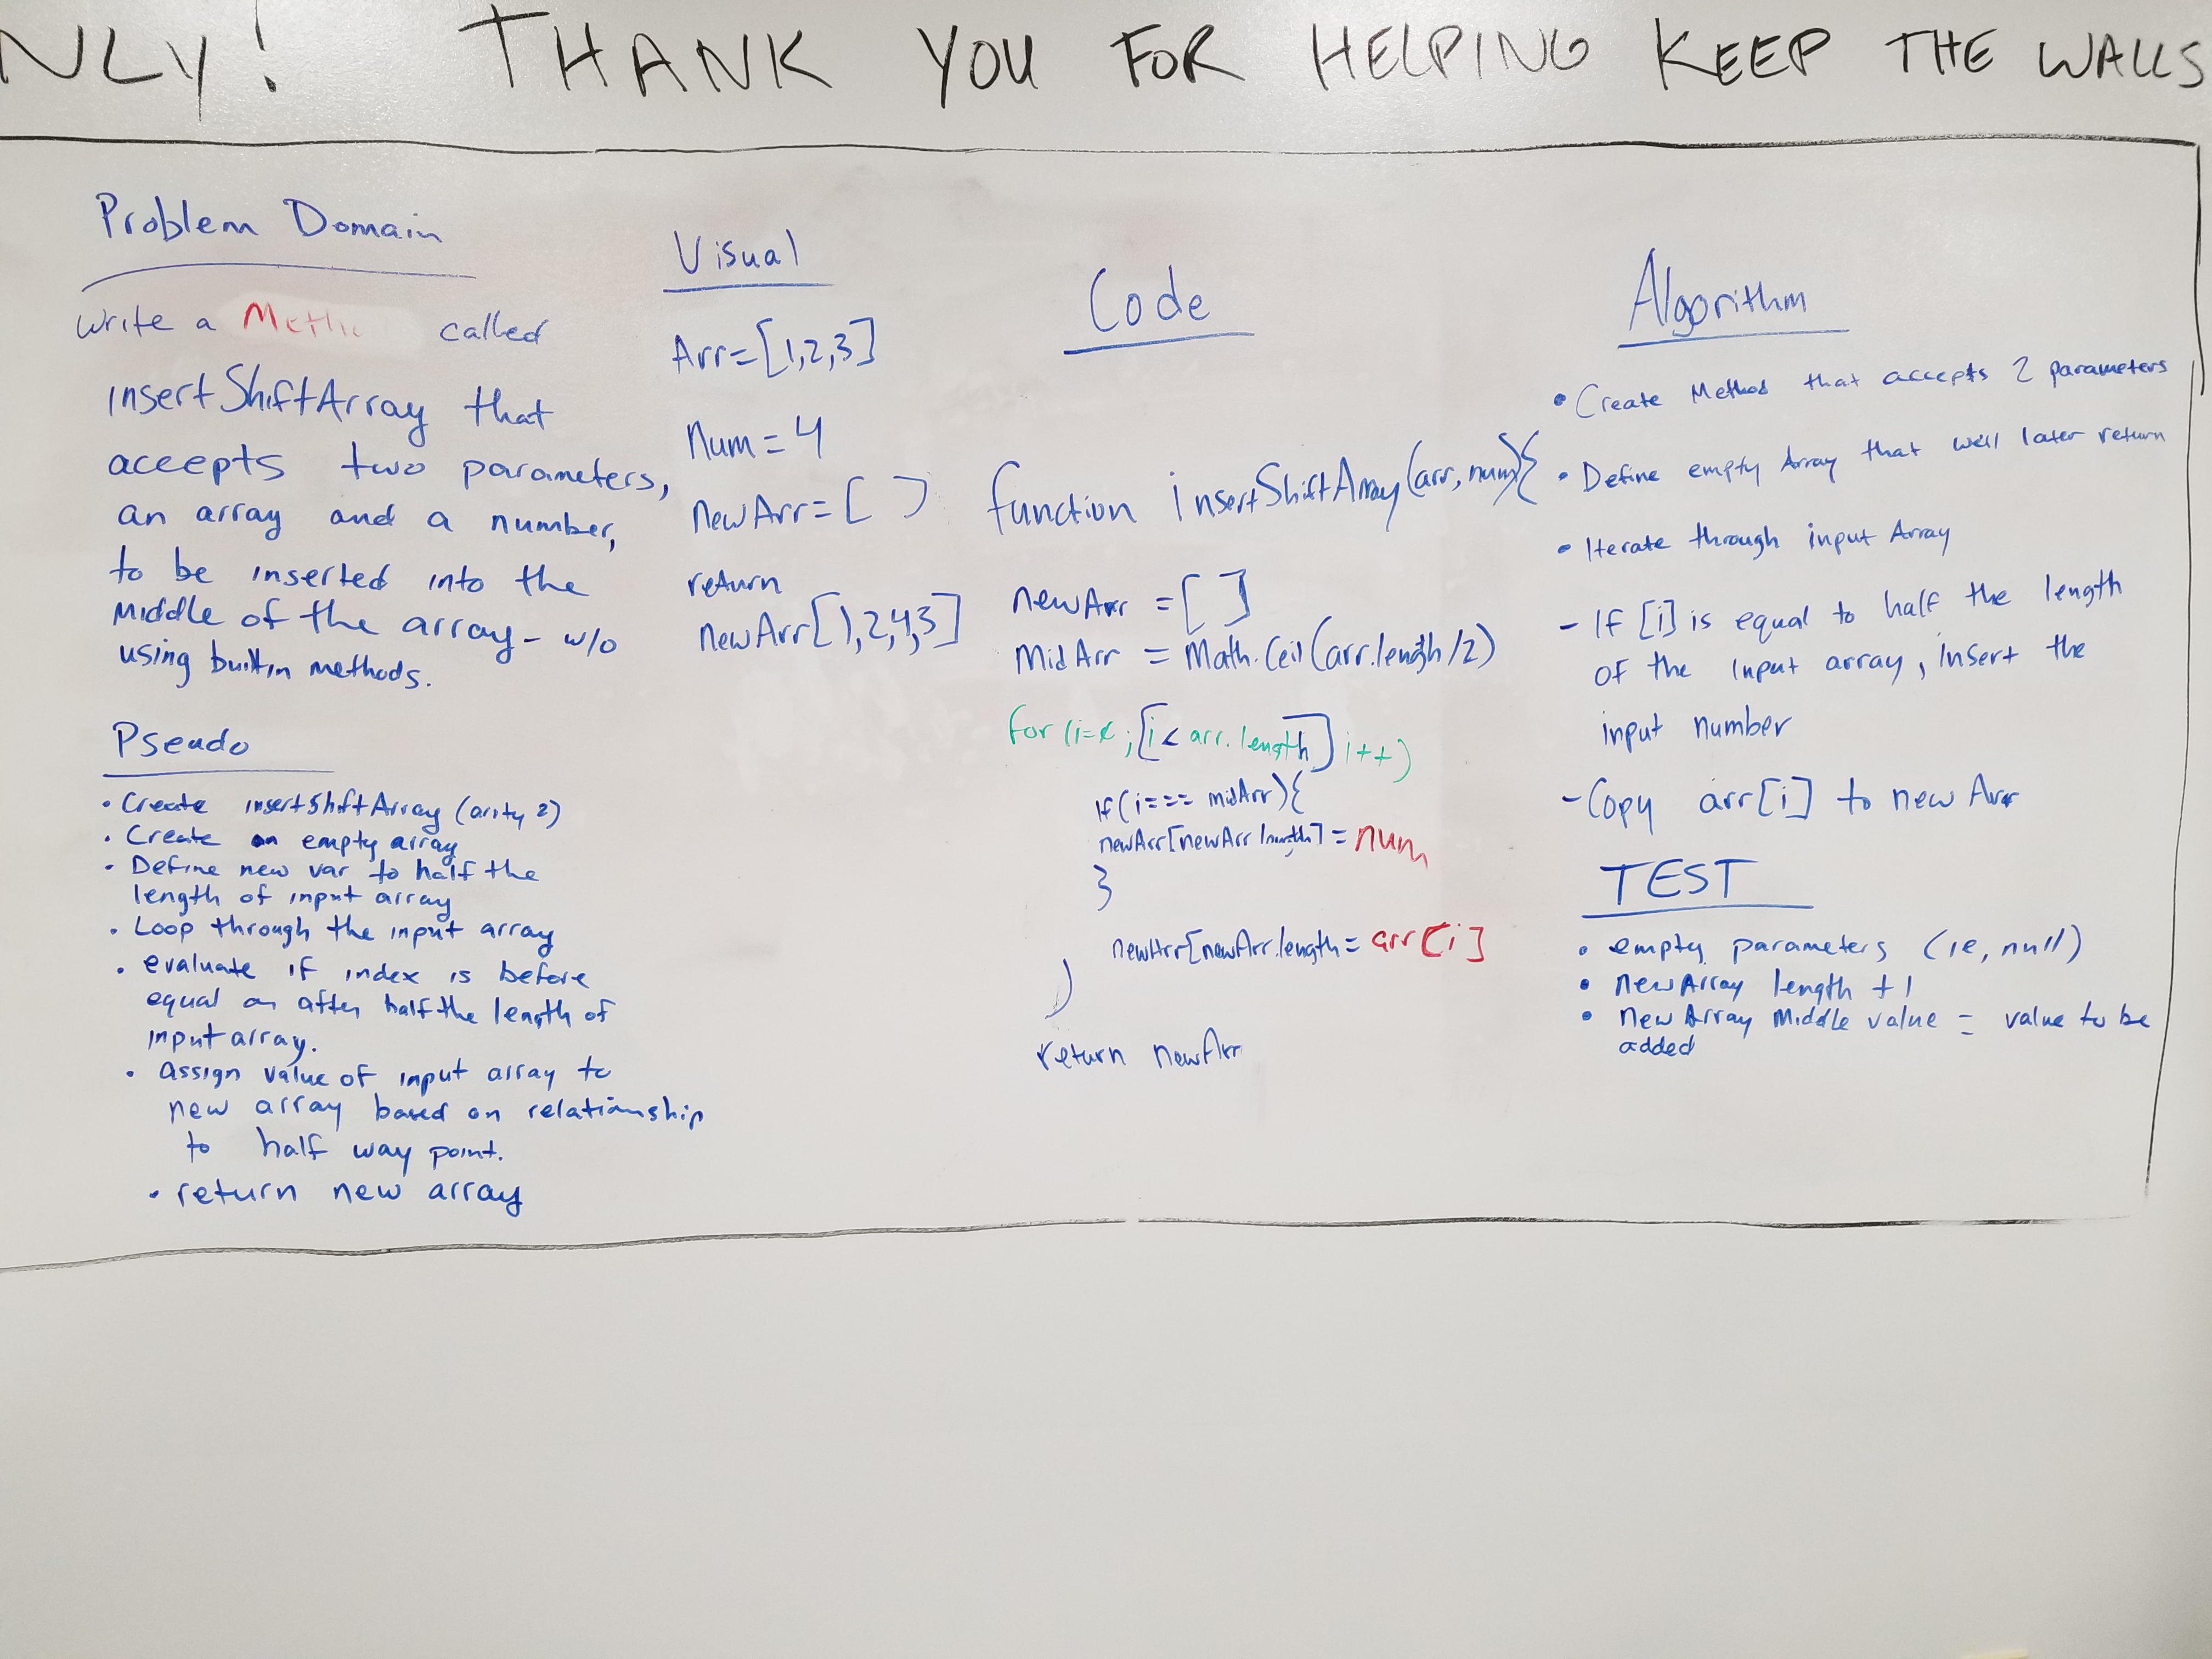 NLY! THANK YOU FOR HELPING KEEP THE WALLS
Problem Domain
write a Meth called
insertShiftArray that
accepts two parameters,
an array and a number,
to be inserted into the
middle of the array - w/o
using builtin methods.
Pseudo
• Create insertShiftArray (arity 2)
• Create an empty array
• Define new var to half the
length of input array
• Loop through the input array
• evaluate if index is before
equal or after half the length of
input array.
• assign value of input array to
new array based on relationship
to half way point.
• return new array
Visual
Arr=[1,2,3]
num=4
newArr=[ ]
return
newArr[1,2,4,3]
Code
function insertShiftArray(arr, num){
newArr = [ ]
midArr = Math.Ceil(arr.length/2)
for (i=0; [i< arr.length] i++)
if(i=== midArr){
newArr[newArr.length] = num
}
newArr[newArr.length = arr[i]
)
return newArr
Algorithm
• Create Method that accepts 2 parameters
• Define empty Array that well later return
• Iterate through input Array
- If [i] is equal to half the length
of the input array, insert the
input number
- Copy arr[i] to new Arr
TEST
• empty parameters (ie, null)
• newArray length +1
• new Array Middle value = value to be
added